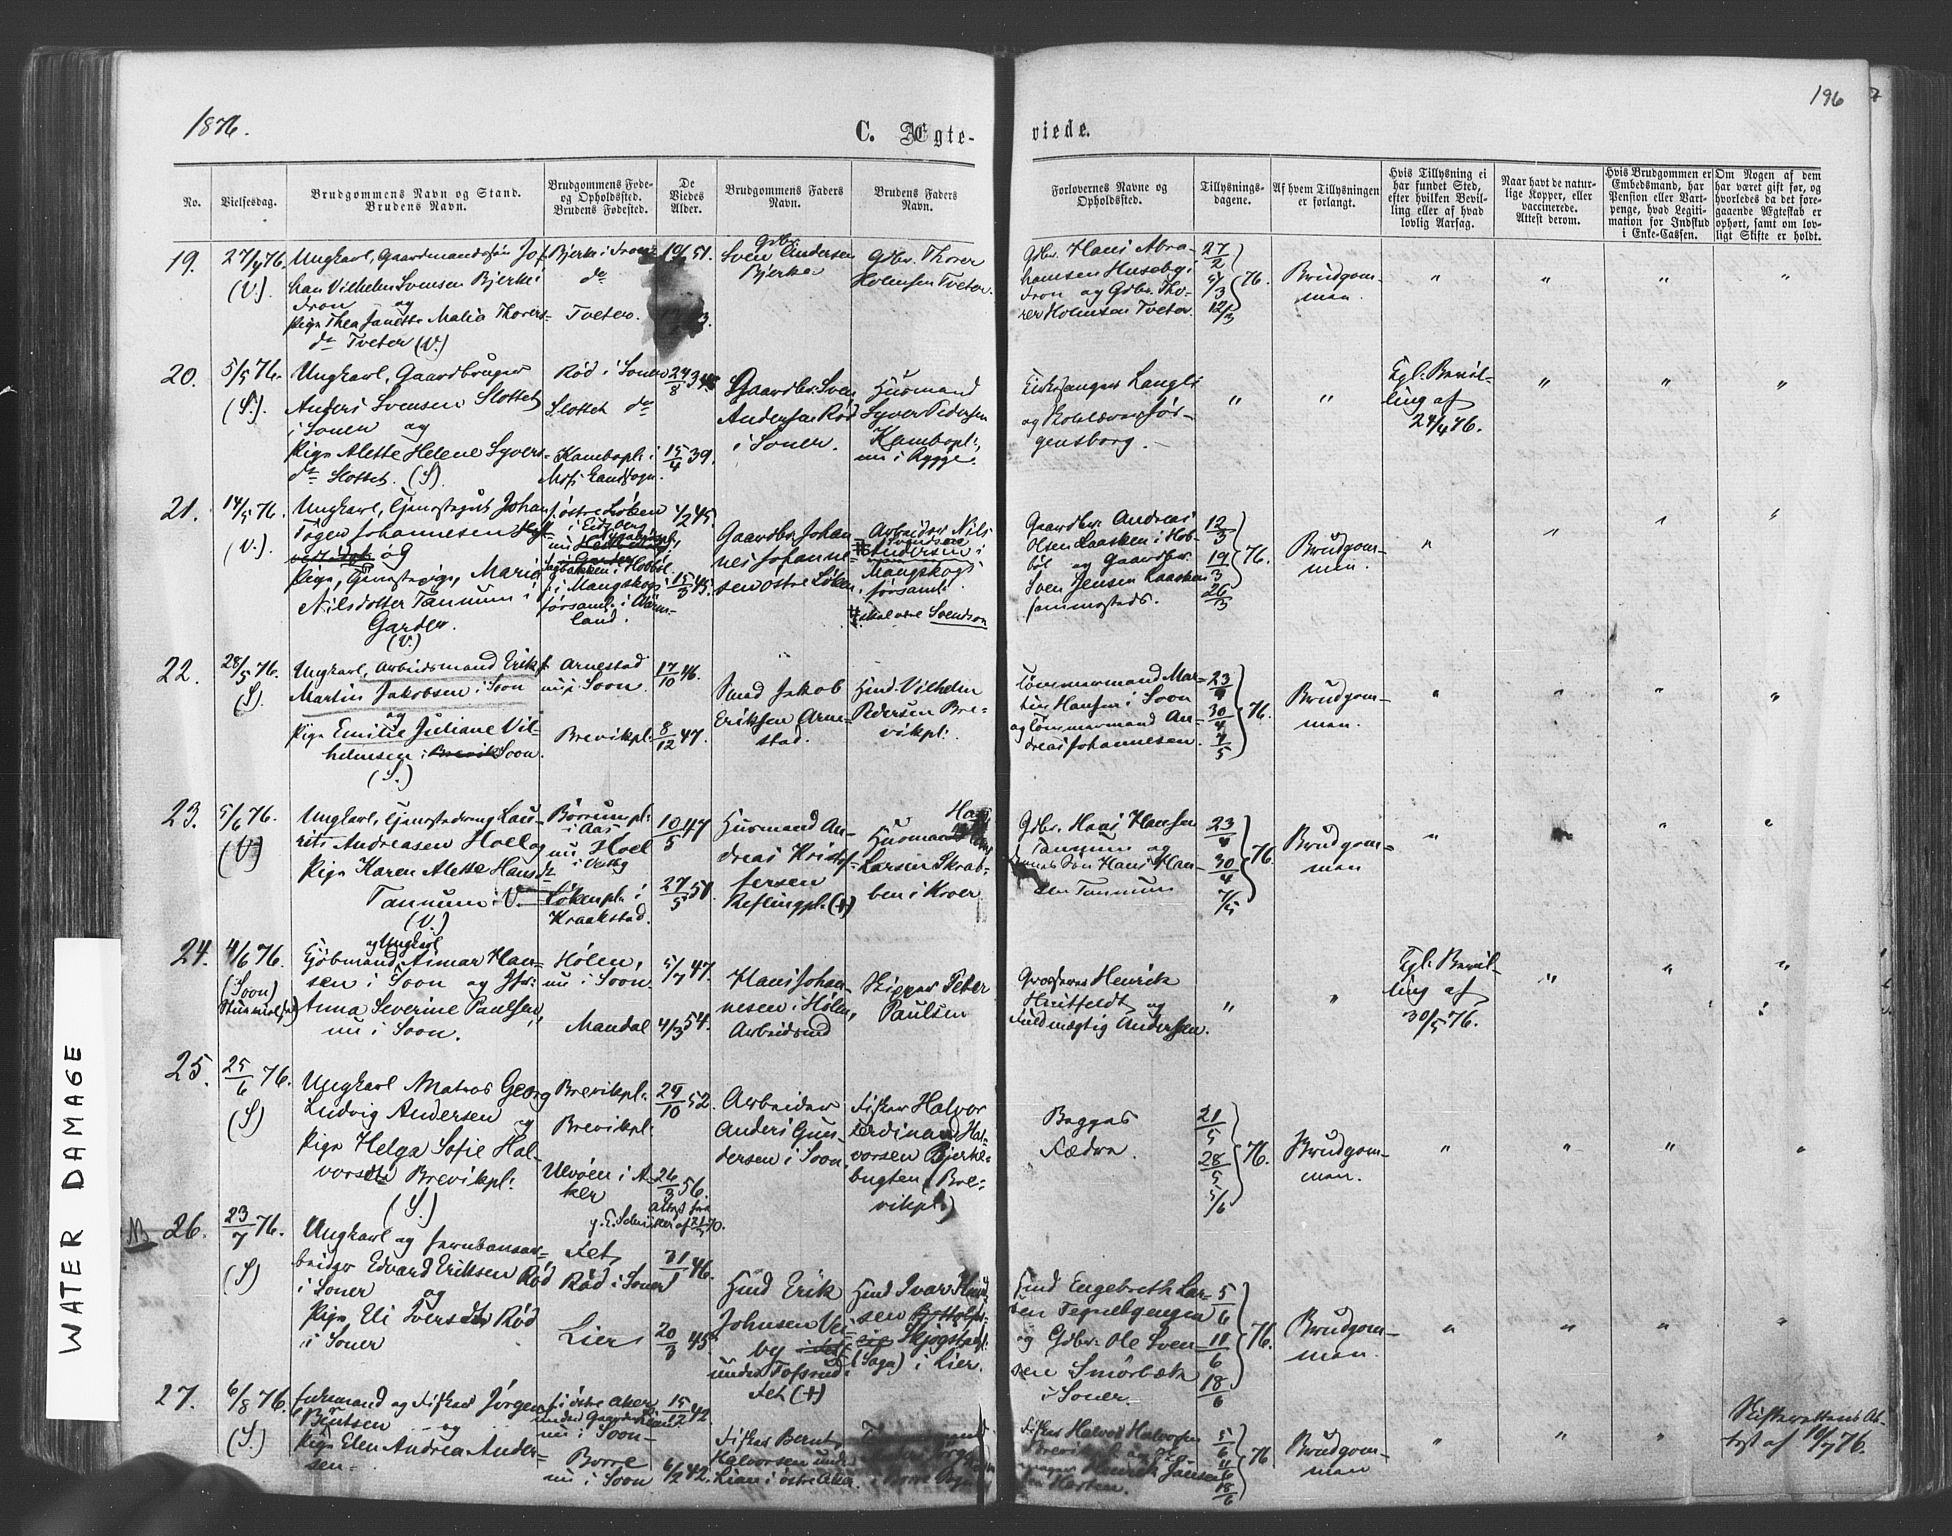 1876.
C. Ægte-
viede.
196
7
No.
Vielsesdag.
Brudgommens Navn og Stand.
Brudens Navn.
Brudgommens Føde-
og Opholdssted.
Brudens Fødested.
De
Viedes
Alder.
Brudgommens Faders
Navn.
Brudens Faders
Navn.
Forlovernes Navne og
Opholdssted.
Tillysnings-
dagene.
Af hvem Tillysningen
er forlangt.
Hvis Tillysning ei
har fundet Sted,
efter hvilken Bevil-
ling eller af hvad
lovlig Aarsag.
Naar havt de natur-
lige Kopper, eller
vaccinerede.
Attest derom.
Hvis Brudgommen er
Embedsmand, har
Pension eller Vart-
penge, hvad Legiti-
mation for Indskud
i Enke-Cassen.
Om Nogen af dem
har været gift før, og
hvorledes da det fore-
gaaende Ægteskab er
ophørt, samt om lov-
ligt Skifte er holdt.
19.
27/4 76.
(V.)
Ungkarl, Gaardmandssøn Jo-
han Vilhelm Svensen Bjerke i
Fron og
Pige Thea Janette Malia Thorers-
dr Tveter (V.)
Bjerke i Fron
do
Tveter.
51.
Gdbr.
Sven Andersen
Bjerke
Gdbr. Thorer
Holmsen Tveter.
Gdbr. Hans Abra-
hamsen Huseby i
Fron og Gdbr. Tho-
rer Holmsen Tveter
27/2
5/3 76.
12/3
Brudgom-
men.
20.
5/5 76.
(S.)
Ungkarl, Gaardbruger
Anders Svensen Slottet
i Soner og
Pige Alette Helene Syvers-
dr Slottet. (S.)
Rød i Soner
Slottet do
Kambopl. i
Moss Landsogn.
24/8
15/4 39.
Gaardbr. Sven
Andersen Rød
i Soner.
Husmand
Syver Pedersen
Kambopl.,
nu i Rygge.
Kirkesanger Langli
og
gensborg.
Kgl. Bevil-
ling af
24/4 76.
21.
14/5 76.
(V.)
Ungkarl, Tjenestegut Johan
Johannesen
og
Pige, Tjenestepige, Maria
Nilsdotter Tannum i
Garder.
(V.)
f. østre Løken
i Eidsberg
i Hobøl.
f. i Mangskogs
församl. i Värm-
land.
1/2 45
15/3 45.
Gaardbr. Johan-
nes Johanne-
sen østre Løken
Arbeider Nils
Svendsen
Andersen i
Mangskogs
församl.
skal være Svendson
Gaardbr. Andreas
Olsen Laasken i Hob-
øl og Gaardbr.
Sven Jensen Laasken
sammesteds.
12/3
19/3 76.
26/3
Brudgom-
men.
22.
28/5 76.
(S.)
Ungkarl, Arbeidsmand Erik
Martin Jakobsen i Soon
og
Pige Emilie Juliane Vil-
helmsen i Brevik Soon.
(S.)
f. Arnestad
nu i Soon.
Brevikpl.
17/10 46.
8/12 47.
Smed Jakob
Eriksen Arne-
stad.
Hmd. Vilhelm
Pedersen Bre-
vikpl.
Tømmermand Mar-
tin Hansen i Soon
og Tømmermand An-
dreas Johannesen.
23/4
30/4 76.
7/5
Brudgom-
men.
23.
5/6 76.
(V.)
Ungkarl, Tjenestedreng Lau-
rits Andreasen Hoel og
Pige Karen Alette Hansdr
Tannum i V.
(V.)
Børrumpl.
i Aas
nu Hoel
i Vestby
Løkenpl. i
Kraakstad.
10/5 47
27/5 51.
Husmand An-
dreas Kristof-
fersen
Keflingpl. (+)
Husmand
Larsen Skrab-
ben i Kroer.
Gdbr. Hans Hansen
Tannum og
Hans Han-
sen Tannum
23/4
30/4 76.
7/5
Brudgom-
men
24.
4/6 76.
(Soon)
og Ungkarl
Kjøbmand, Aimar Han-
sen i Soon og Jfr.
Anna Severine Paulsen,
nu i Soon.
Hølen,
nu i Soon
Mandal
5/7 47.
4/3 54.
Hans Johan-
nesen i Hølen,
Arbeidsmd
Skipper Peter
Paulsen
Grosserer Henrik
Huitfeldt og
Fuldmægtig Andersen.
Kgl. Bevil-
ling af
30/5 76.
25.
25/6 76.
(S)
Ungkarl Matros Georg
Ludvig Andersen og
Pige Helga Sofie Hal-
vorsdtr Brevikpl.
(S.)
Brevikpl.
Brevikpl.
Ulvøen i A-
ker
24/10 52.
26/3 56.
Arbeider
Anders Gun-
dersen i Soon.
Fisker Halvor
Ferdinand Hal-
vorsen Bjerke-
bugten (Bre-
vikpl.)
Begges
Fædre.
21/5
28/5 76.
5/6
Brudgom-
men.
NB
26.
23/7 76.
(S)
Ungkarl og Jernbanear-
beider Edvard Eriksen Rød
i Soner og
Pige Eli Iversdtr Rød
i Soner
Fet,
Rød i Soner
Lier
31/1 46.
20/3 45.
Hmd Erik
Johnsen Ve-
by
under Tofsrud
Fet (+)
Hmd Ivar Knud-
sen
Skjøgstad
i Lier.
Hmd Engebreth Lar-
sen Tegnebyengen
og Gdbr. Ole Sven-
sen Smørbæk
i Soner.
5/6
11/6 76.
18/6
Brudgom-
men.
27.
6/8 76.
(S.)
Enkemand og Fisker Jørgen
Berntsen og
Pige Elen Andrea Ander-
sen.
f. i østre Aker
nu i Soon
Borre
nu i Soon
15/12 42.
6/2 42.
Fisker Bernt
Halvorsen under
Lian i østre Aker
i Borre
Fisker Halvor Halvorsen
Brevik og
Henrik Jansen
5/6
11/6 76
18/6
Brudgom-
men
Skifterettens At-
test af 10/7 76.
WATER DAMAGE